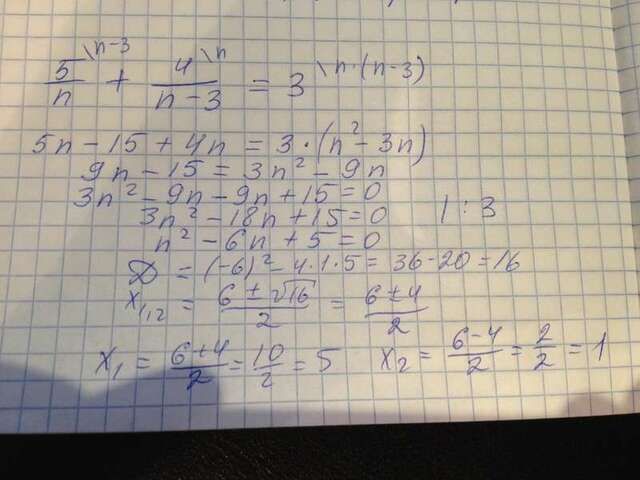 5/n \n-3 + 4/(n-3) \n = 3 \n·(n-3)
5n - 15 + 4n = 3·(n² - 3n)
9n - 15 = 3n² - 9n
3n² - 9n - 9n + 15 = 0
3n² - 18n + 15 = 0 | : 3
n² - 6n + 5 = 0
D = (-6)² - 4·1·5 = 36 - 20 = 16
x₁,₂ = (6 ± √16)/2 = (6 ± 4)/2
x₁ = (6+4)/2 = 10/2 = 5 x₂ = (6-4)/2 = 2/2 = 1